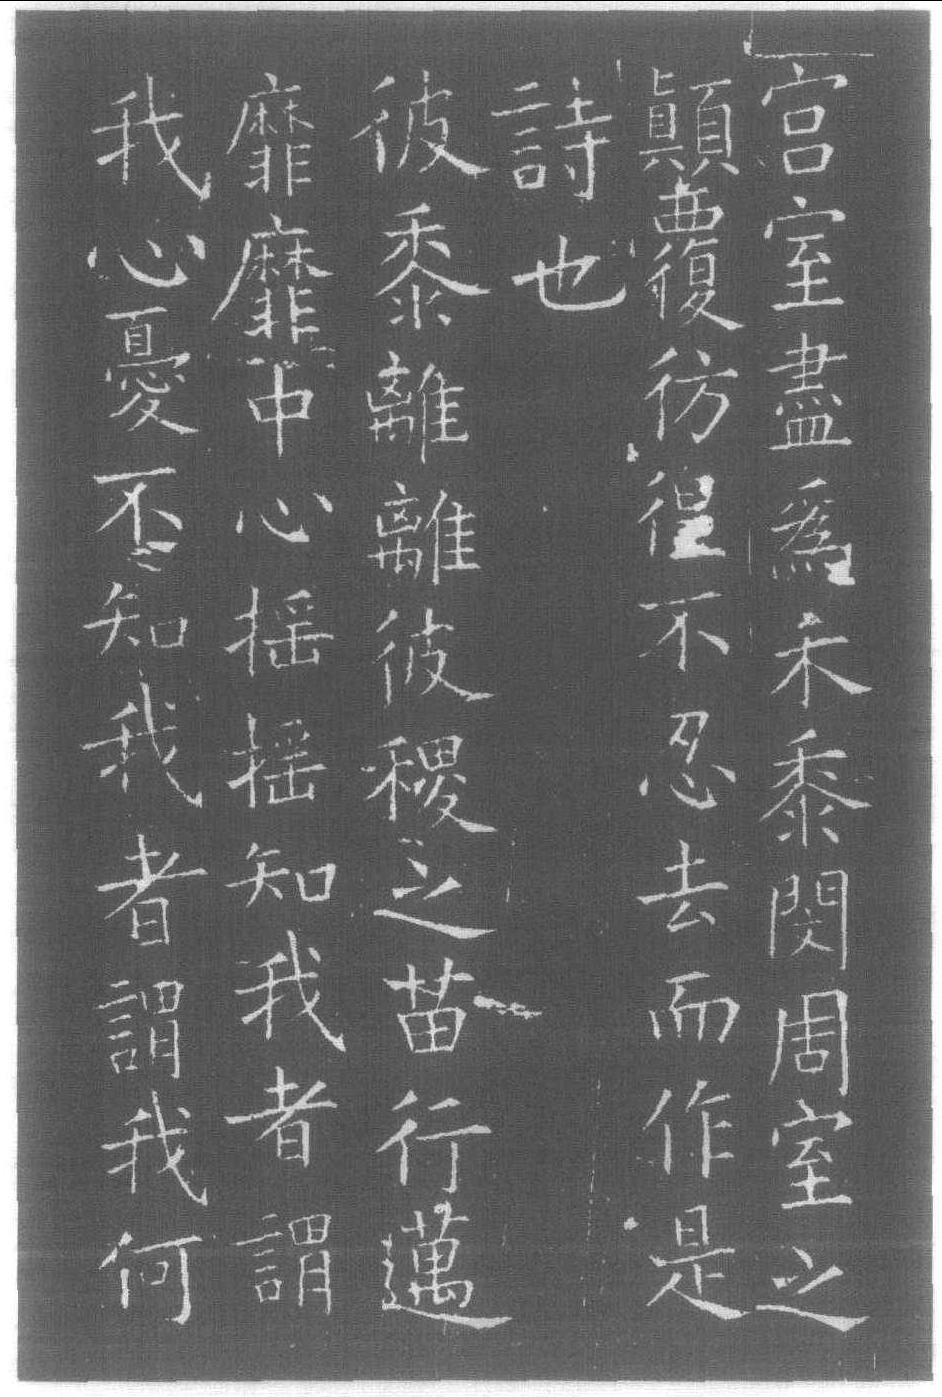 宮室盡為禾黍閔周室之
顛覆彷徨不忍去而作是
詩也
彼黍離離彼稷之苗行邁
靡靡中心揺揺知我者謂
我心憂不知我者謂我何